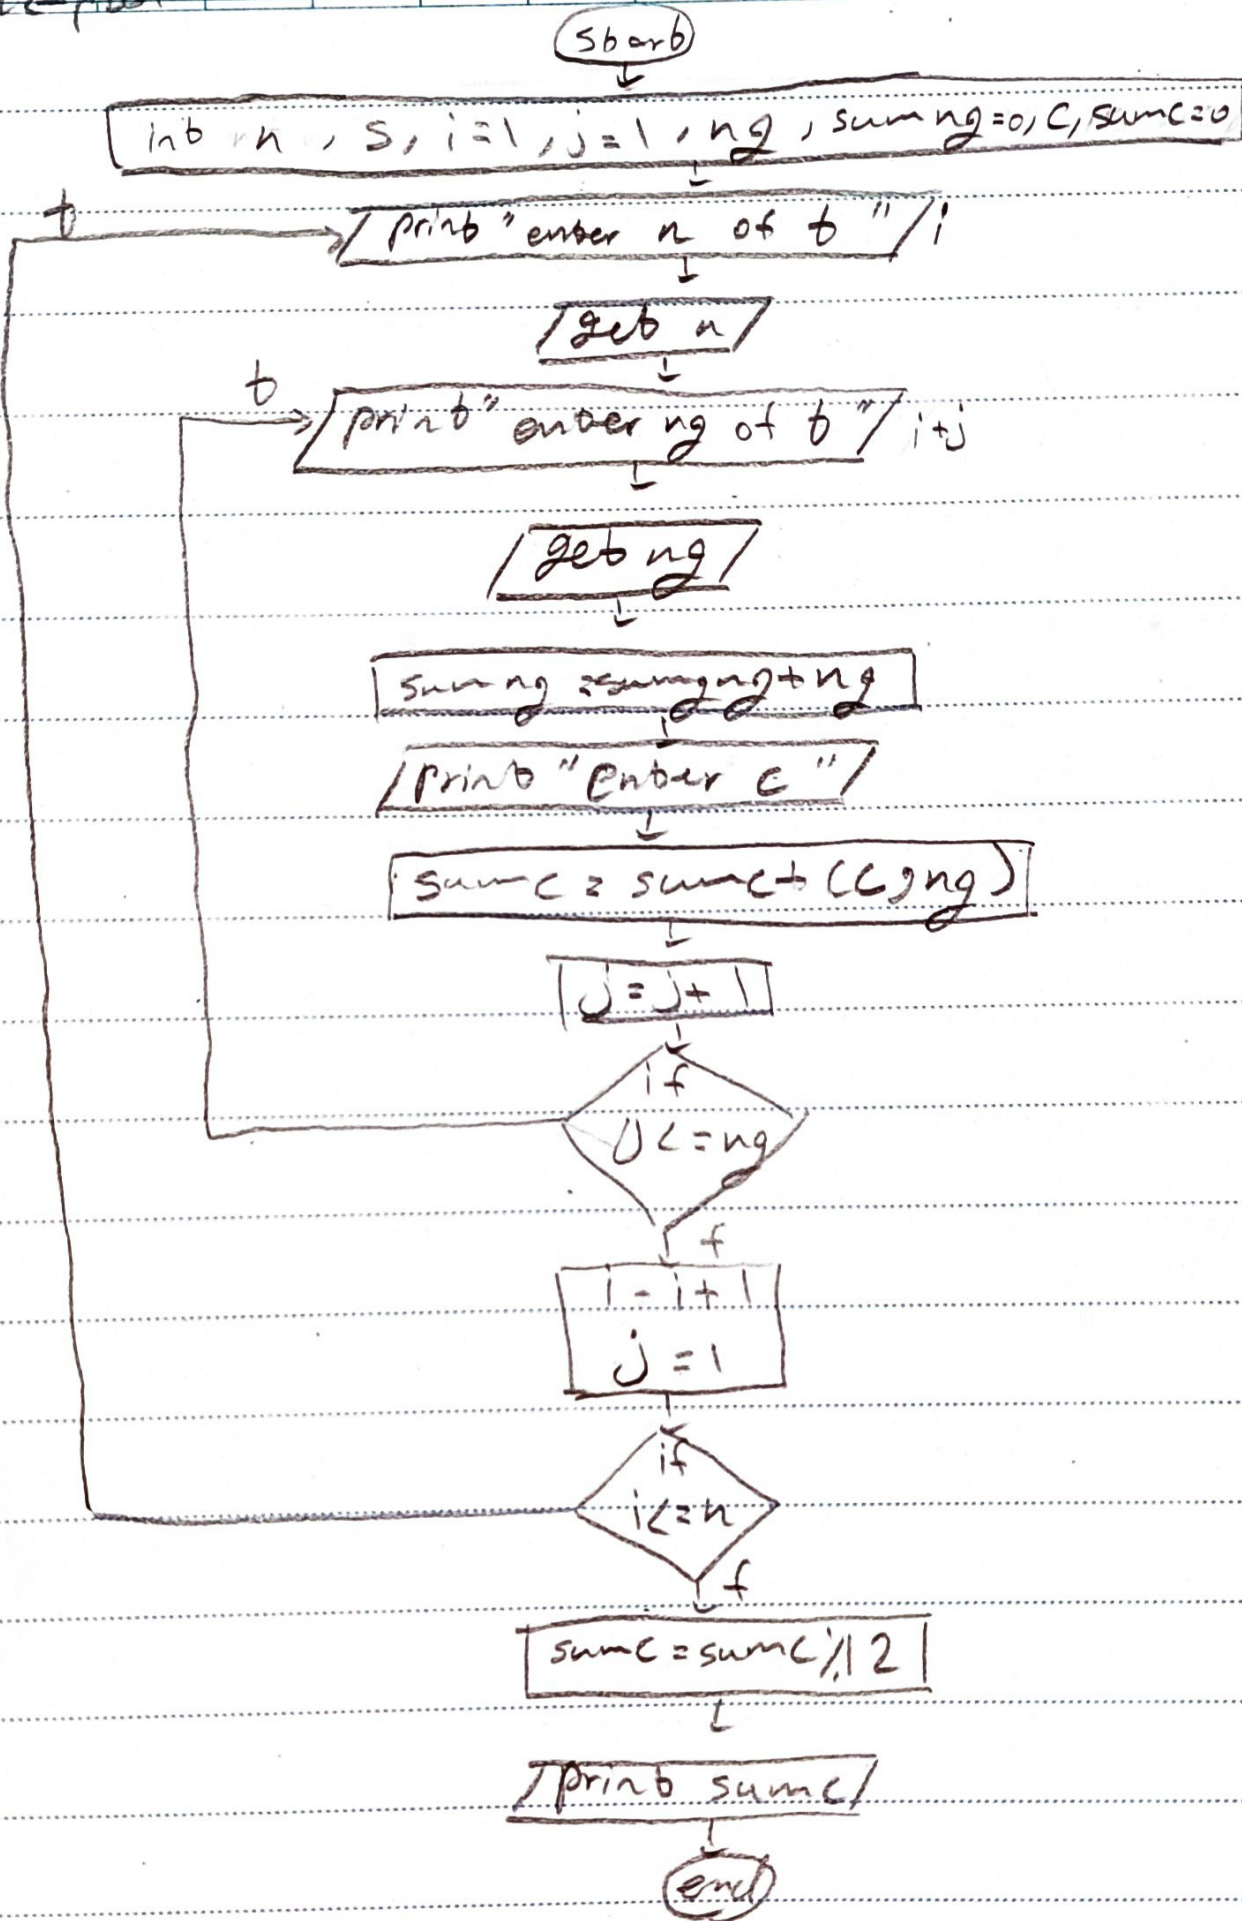 start
int n, s, i=1, j=1, ng, sumng=0, c, sumc=0
t
print "enter n of t" i
get n
t
print "enter ng of t" i+j
get ng
sumng = sumgng+ng
print "Enter c"
sumc = sumc+(c,ng)
j=j+1
if
j<=ng
f
i-i+1
j=1
if
i<=n
f
sumc=sumc
print sumc
end